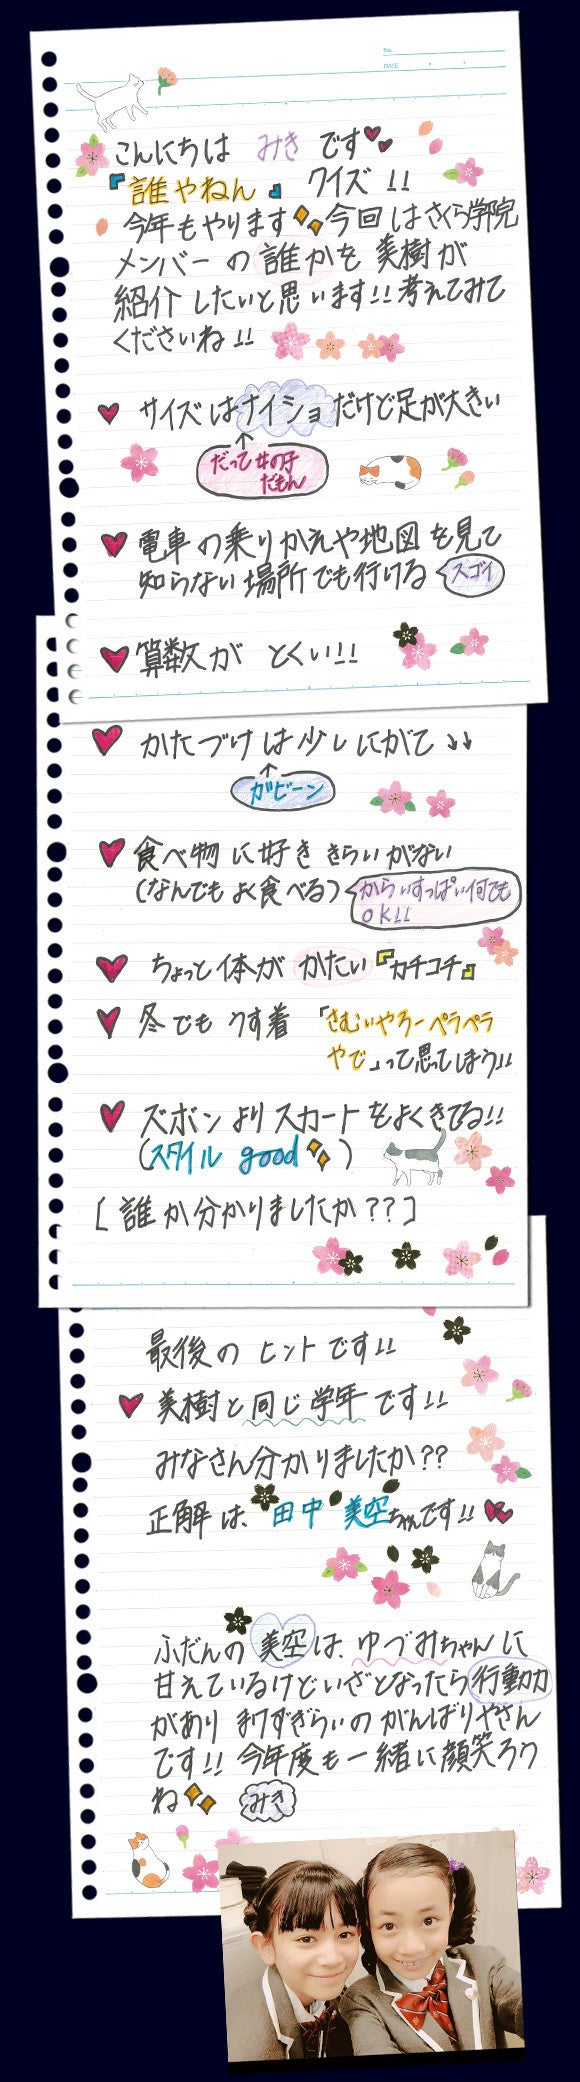 No.
DATE
こんにちは みき です
『誰やねん』 クイズ !!
今年もやります 今回はさくら学院
メンバーの誰かを 美樹が
紹介したいと思います!! 考えてみて
くださいね!!
サイズはナイショだけど足が大きい
↑
だって女の子
だもん
電車の乗りかえや地図を見て
知らない場所でも行ける スゴイ
算数が とくい!!
かたづけは少しにがて ↓↓
↑
ガビーン
食べ物に好き きらいがない
(なんでもよく食べる) からいすっぱい何でも
OK!!
ちょっと体が かたい『カチコチ』
冬でも うす着 「さむいやろーペラペラ
やで」って思ってしまう!!
ズボンよりスカートをよくきてる!!
(スタイル good )
[ 誰か分かりましたか?? ]
最後の ヒントです!!
美樹と同じ学年です!!
みなさん分かりましたか??
正解は、田中 美空ちゃんです!!
ふだんの美空は、ゆづみちゃんに
甘えているけどいざとなったら行動力
があり まけずぎらいの がんばりやさん
です!! 今年度も一緒に顔笑ろう
ね みき